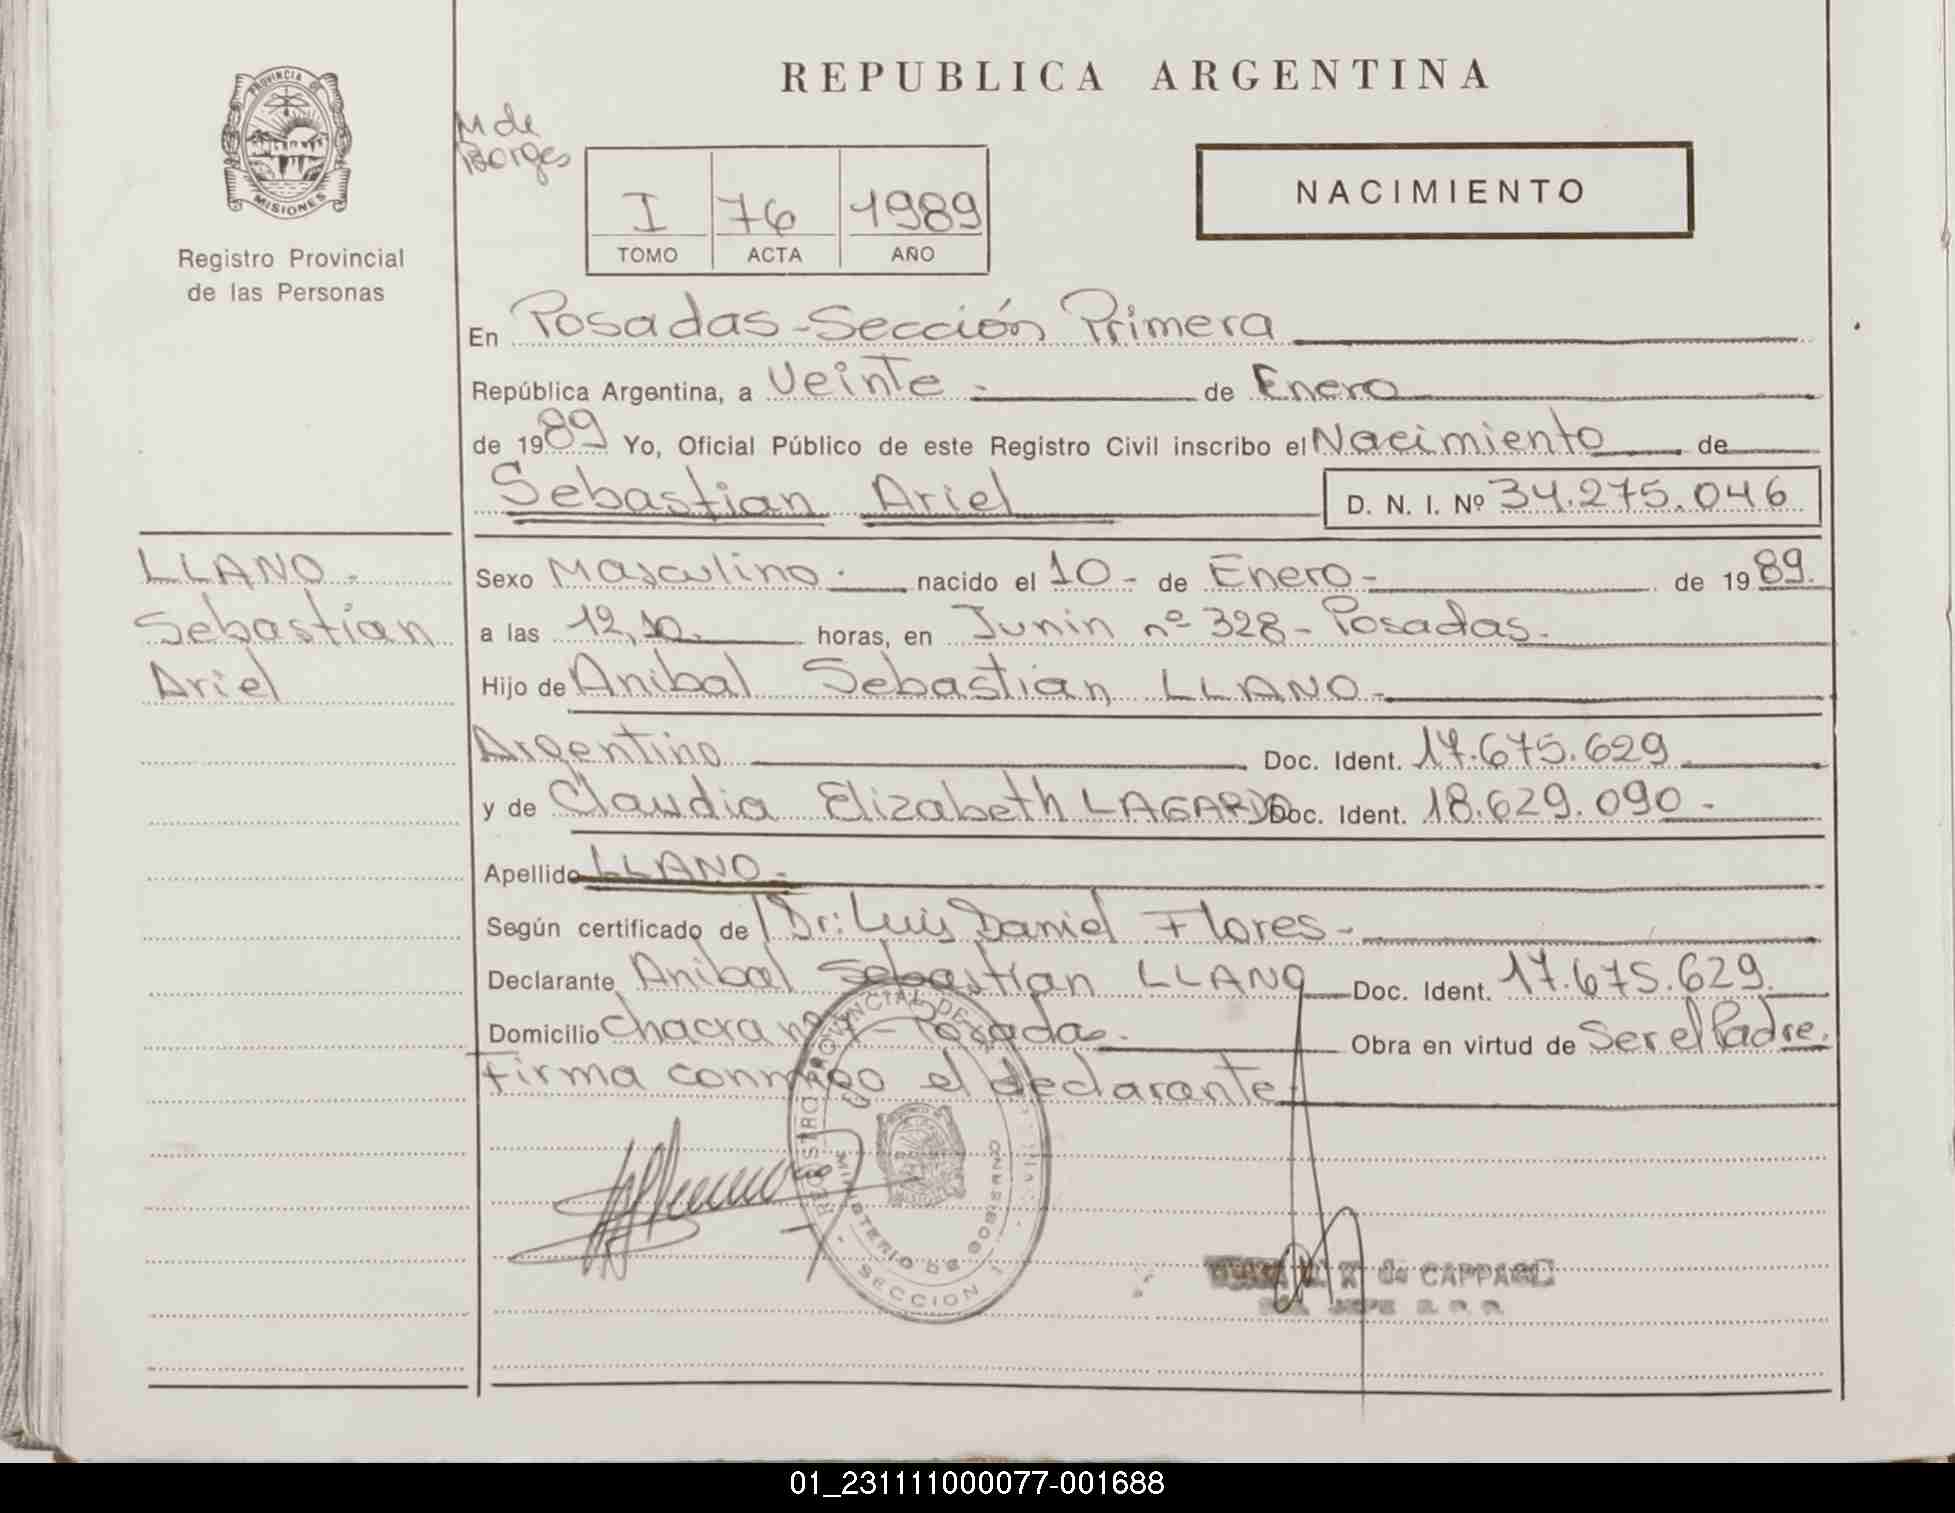 REPUBLICA ARGENTINA
PROVINCIA DE
MISIONES
Registro Provincial
de las Personas
M de
Borges
I 76 1989
TOMO ACTA AÑO
NACIMIENTO
En Posadas-Sección Primera
República Argentina, a Veinte.- de Enero
de 1989 Yo, Oficial Público de este Registro Civil inscribo el Nacimiento de
Sebastian Ariel D. N. I. Nº 34.275.046
LLANO.-
Sebastian
Ariel
Sexo Masculino.- nacido el 10- de Enero- de 1989.
a las 12,10. horas, en Junin nº 328- Posadas.
Hijo de Anibal Sebastian LLANO-
Argentino Doc. Ident. 17.675.629
y de Claudia Elizabeth LAGARDO Doc. Ident. 18.629.090-
Apellido LLANO.-
Según certificado de Dr: Luis Daniel Flores-
Declarante Anibal Sebastian LLANO Doc. Ident. 17.675.629.
Domicilio Chacra nº - Posadas- Obra en virtud de Ser el Padre.
Firma conmigo el declarante.
REGISTRO PROVINCIAL DE
MINISTERIO DE GOBIERNO
SECCION 1
de CAPPA
JEFE
01_231111000077-001688